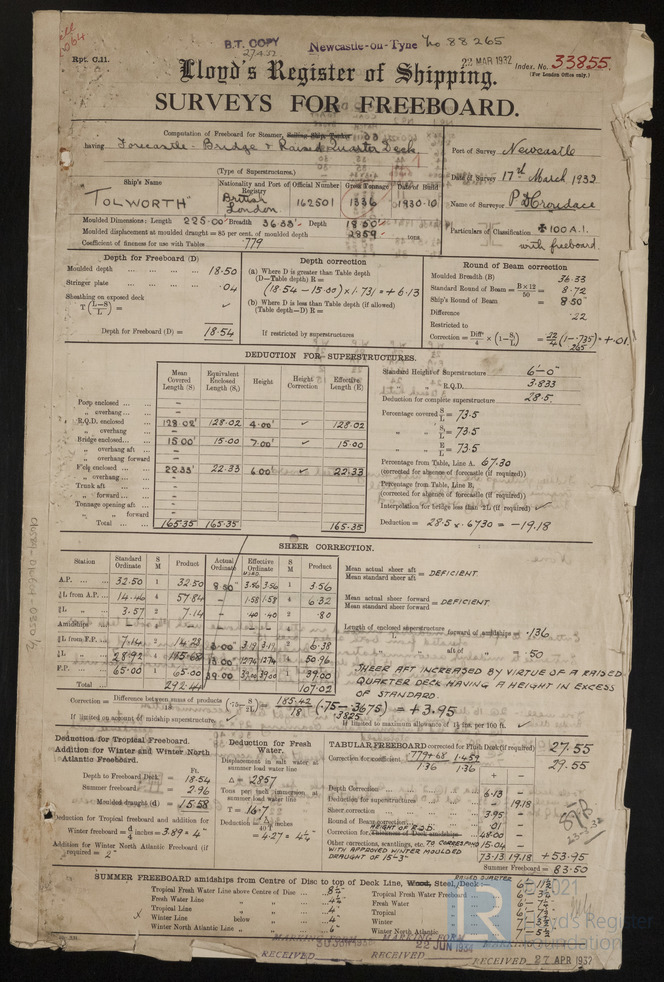 B.T. COPY
27.4.32
Newcastle-on-Tyne No 88265
Rpt. C.11.
22 MAR 1932
Index. No. 33855.
(For London Office only.)
Lloyd's Register of Shipping.
SURVEYS FOR FREEBOARD.
Computation of Freeboard for Steamer, Sailing Ship, Tanker
having Forecastle - Bridge & Raised Quarter Deck
(Type of Superstructures.)
Port of Survey Newcastle
Date of Survey 17th March 1932
Name of Surveyor P. D. Croudace
Particulars of Classification ✠ 100 A.1.
with freeboard.
Ship's Name
Nationality and Port of Registry
Official Number
Gross Tonnage
Date of Build
"TOLWORTH"
British
London
162501
1336
1930-10
Moulded Dimensions: Length 225.00' Breadth 36.33' Depth 18.50'
Moulded displacement at moulded draught = 85 per cent. of moulded depth 2859 tons
Coefficient of fineness for use with Tables .779
Depth for Freeboard (D)
Moulded depth ... 18.50
Stringer plate ... .04
Sheathing on exposed deck
T (L-S/L) =
Depth for Freeboard (D) = 18.54
Depth correction
(a) Where D is greater than Table depth
(D—Table depth) R =
(18.54 - 15.00) × 1.731 = + 6.13
(b) Where D is less than Table depth (if allowed)
(Table depth—D) R =
If restricted by superstructures
Round of Beam correction
Moulded Breadth (B) 36.33
Standard Round of Beam = B×12/50 = 8.72
Ship's Round of Beam = 8.50
Difference .22
Restricted to
Correction = Diff/4 × (1-S₁/L) = .22/4 (1-.735) = +.01
.265
DEDUCTION FOR SUPERSTRUCTURES.
Mean Covered Length (S)
Equivalent Enclosed Length (S₁)
Height
Height Correction
Effective Length (E)
Poop enclosed ... –
„ overhang ... –
R.Q.D. enclosed 128.02' 128.02 4.00' ✓ 128.02
„ overhang –
Bridge enclosed... 15.00' 15.00 7.00' ✓ 15.00
„ overhang aft –
„ overhang forward
F'cle enclosed 22.33' 22.33 6.00' ✓ 22.33
„ overhang ... –
Trunk aft –
„ forward... –
Tonnage opening aft –
„ „ forward –
Total ... 165.35 165.35 165.35
Standard Height of Superstructure 6'-0"
„ „ R.Q.D. 3.833
Deduction for complete superstructure 28.5.
Percentage covered S/L = 73.5
„ „ S₁/L = 73.5
„ „ E/L = 73.5
Percentage from Table, Line A. 67.30
(corrected for absence of forecastle (if required))
Percentage from Table, Line B.
(corrected for absence of forecastle (if required))
Interpolation for bridge less than ·2L (if required) ✓
Deduction = 28.5 × .6730 = -19.18
SHEER CORRECTION.
Station
Standard Ordinate
S M
Product
Actual Ordinate
Effective Ordinate
S M
Product
A.P. 32.50 1 32.50 3.56 3.56 1 3.56
⅙L from A.P. 14.46 4 57.84 – 1.58 1.58 4 6.32
⅓L „ 3.57 2 7.14 – .40 .40 2 .80
Amidships
⅓L from F.P. 7.14 2 14.28 3.00" 3.19 3.19 2 6.38
⅙L „ 28.92 4 115.68 13.00" 12.74 12.74 4 50.96
F.P. 65.00 1 65.00 39.00 39.00 39.00 1 39.00
Total ... 292.44 107.02
Mean actual sheer aft
Mean standard sheer aft
= DEFICIENT.
Mean actual sheer forward
Mean standard sheer forward
= DEFICIENT.
Length of enclosed superstructure forward of amidships = .136
L
„ aft of „ = .50
SHEER AFT INCREASED BY VIRTUE OF A RAISED
QUARTER DECK HAVING A HEIGHT IN EXCESS
OF STANDARD
Correction = Difference between sums of products/18 (·75 - S/2L) = 185.42/18 (.75 - .3675) = + 3.95
.3825
If limited on account of midship superstructure.
If limited to maximum allowance of 1½ ins. per 100 ft. ✓
Deduction for Tropical Freeboard.
Addition for Winter and Winter North
Atlantic Freeboard.
Ft.
Depth to Freeboard Deck = 18.54
Summer freeboard = 2.96
Moulded draught (d) = 15.58
Deduction for Tropical freeboard and addition for
Winter freeboard = d/4 inches = 3.89 = 4"
Addition for Winter North Atlantic Freeboard (if
required = 2"
Deduction for Fresh
Water.
Displacement in salt water at
summer load water line
Δ = 2857
Tons per inch immersion at
summer load water line
T = 16.7
Deduction = Δ/40T inches
= 4.27 = 4¼"
TABULAR FREEBOARD corrected for Flush Deck (if required) 27.55
Correction for coefficient .779+.68/1.36 1.459/1.36 29.55
+ –
Depth Correction 6.13
Deduction for superstructures 19.18
Sheer correction 3.95
Round of Beam correction .01
Correction for Thickness of Deck amidships HEIGHT OF R.Q.D. 48.00
Other corrections, scantlings, etc. TO CORRESPOND 15.04
WITH APPROVED WINTER MOULDED
DRAUGHT OF 15'-3"
73.13 19.18 + 53.95
Summer Freeboard = 83.50
SUMMER FREEBOARD amidships from Centre of Disc to top of Deck Line, Wood, Steel, Deck
RAISED QUARTER
Tropical Fresh Water Line above Centre of Disc
Fresh Water Line „ „
Tropical Line „ „
Winter Line below „
Winter North Atlantic Line „ „
Tropical Fresh Water Freeboard
Fresh Water „
Tropical „
Winter „
Winter North Atlantic „
MARKING FORM
30 JUN 1933
RECEIVED
MARKING FORM
22 JUN 1934
RECEIVED
RECEIVED 27 APR 1932
© 2021
Lloyd's Register
Foundation